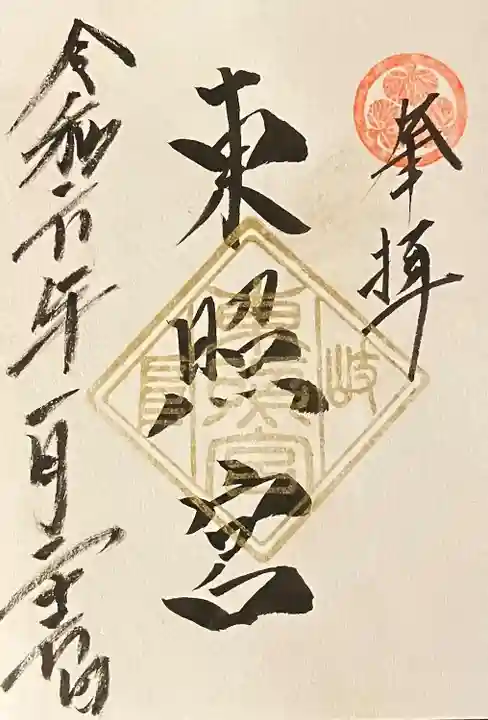 奉拝
東照宮
岐
東照宮
令和
年一月
日